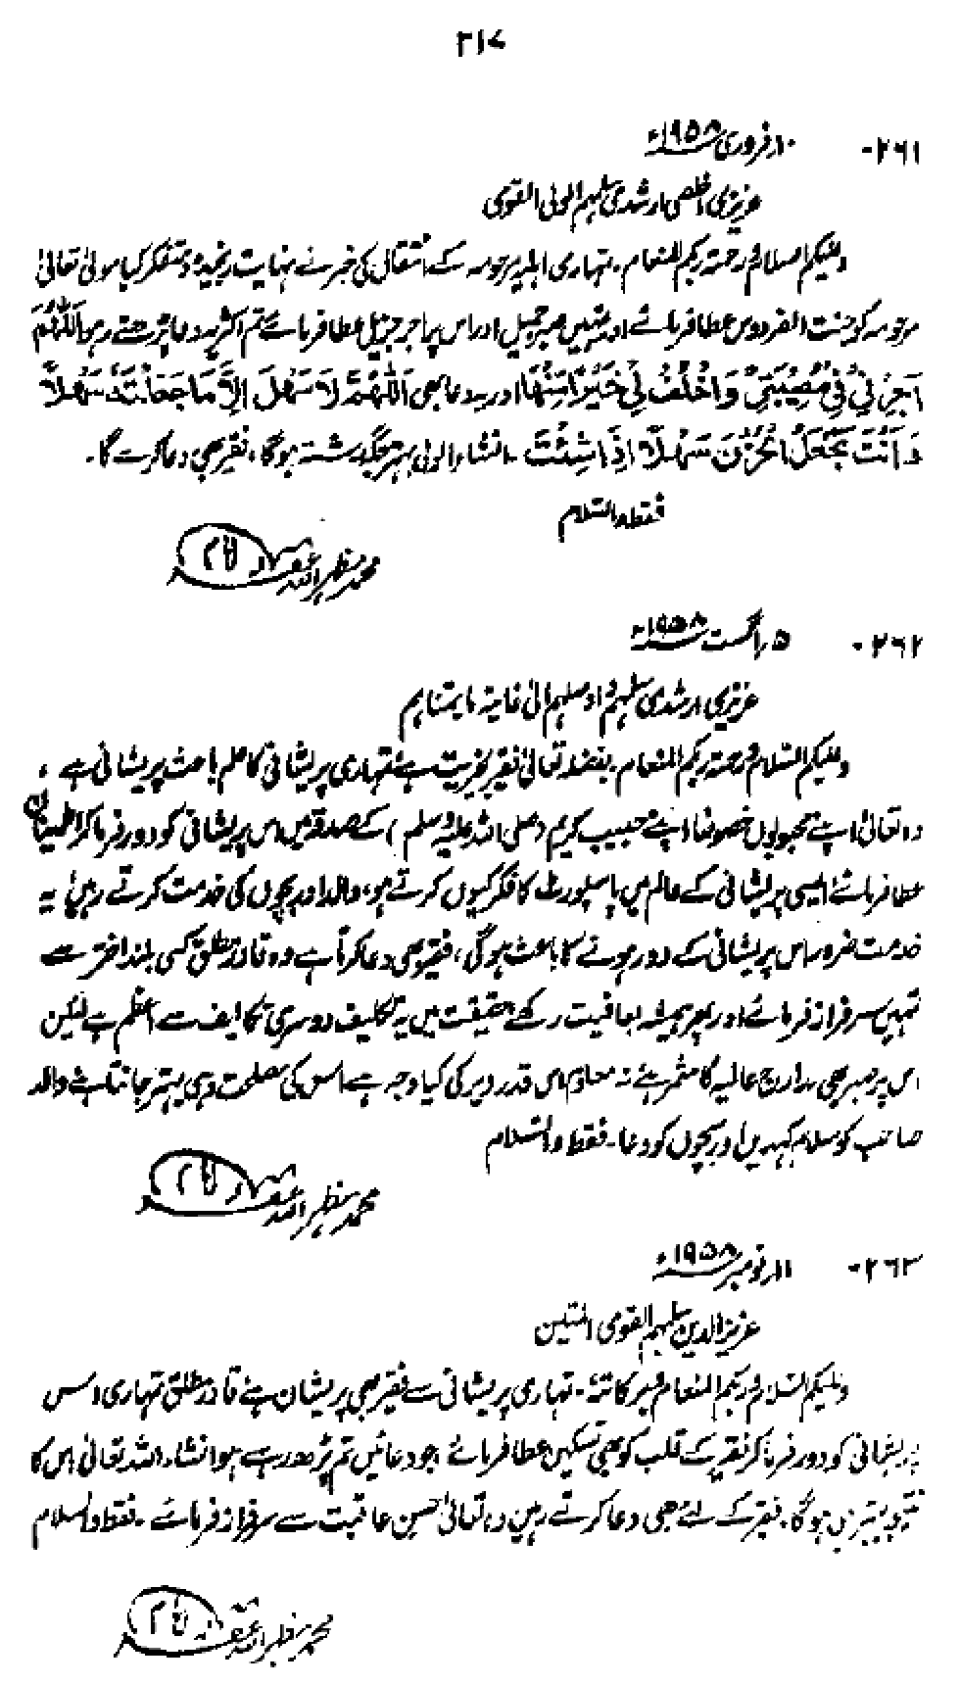 ۳۱۷
۲۶۱- ۱۰ر فروری ۱۹۵۸ء
عزیزی اخلصی ارشدی سلمہم المولی القوی
وعلیکم السلام ورحمۃ ربکم المنعام۔ تمہاری اہلیہ مرحومہ کے انتقال کی خبر نے نہایت رنجیدہ و متفکر کیا مولیٰ تعالیٰ
مرحومہ کو جنت الفردوس عطا فرمائے اور تمہیں صبر جمیل اور اس پر اجر جزیل عطا فرمائے تم اکثر یہ دعا پڑھتے رہو اَللّٰهُمَّ
آجِرْنِیْ فِیْ مُصِیْبَتِیْ وَاخْلُفْ لِیْ خَیْرًا مِّنْهَا اور یہ دعا بھی اَللّٰهُمَّ لَا سَهْلَ اِلَّا مَا جَعَلْتَهٗ سَهْلًا
وَ اَنْتَ تَجْعَلُ الْحُزْنَ سَهْلًا اِذَا شِئْتَ ۔ انشاء المولیٰ بہتر جگہ رشتہ ہوگا، فقیر بھی دعا کرے گا۔
فقط والسلام
محمد مظہر اللہ غفرلہ
۲۶۲- ۵ر اگست ۱۹۵۸ء
عزیزی ارشدی سلمہم و اوصلہم الی غایۃ ما یتمناہم
وعلیکم السلام ورحمۃ ربکم المنعام۔ بفضلہ تعالیٰ فقیر بخیریت ہے، تمہاری پریشانی کا علم باعث پریشانی ہے،
وہ تعالیٰ اپنے محبوبوں خصوصاً اپنے حبیب کریم (صلی اللہ علیہ وسلم) کے صدقہ میں اس پریشانی کو دور فرما کر اطمینان
عطا فرمائے ایسی پریشانی کے عالم میں پاسپورٹ کا فکر کیوں کرتے ہو، والد اور بچوں کی خدمت کرتے رہیں، یہ
خدمت ضرور اس پریشانی کے دور ہونے کا باعث ہوگی، فقیر بھی دعا کرتا ہے وہ قادر مطلق کسی بلند اختر سے
تمہیں سرفراز فرمائے اور پھر ہمیشہ بعافیت رکھے حقیقت میں یہ تکلیف دوسری تکالیف سے اعظم ہے لیکن
اس پر صبر بھی مدارج عالیہ کا مثمر ہے نہ معلوم اس قدر دیر کی کیا وجہ ہے اس کی مصلحت وہی بہتر جانتا ہے والد
صاحب کو سلام کہدیں اور بچوں کو دعا۔ فقط والسلام
محمد مظہر اللہ غفرلہ
۲۶۳- ۱۱ر نومبر ۱۹۵۸ء
عزیز الدین سلمہم القوی المتین
وعلیکم السلام ورحمۃ ربکم المنعام وبرکاتہٗ۔ تمہاری پریشانی سے فقیر بھی پریشان ہے قادر مطلق تمہاری اس
پریشانی کو دور فرما کر فقیر کے قلب کو بھی تسکین عطا فرمائے جو دعائیں تم پڑھ رہے ہو انشاء اللہ تعالیٰ اس کا
نتیجہ بہترین ہوگا، فقیر کے لئے بھی دعا کرتے رہیں وہ تعالیٰ حسن عاقبت سے سرفراز فرمائے۔ فقط والسلام
محمد مظہر اللہ غفرلہ